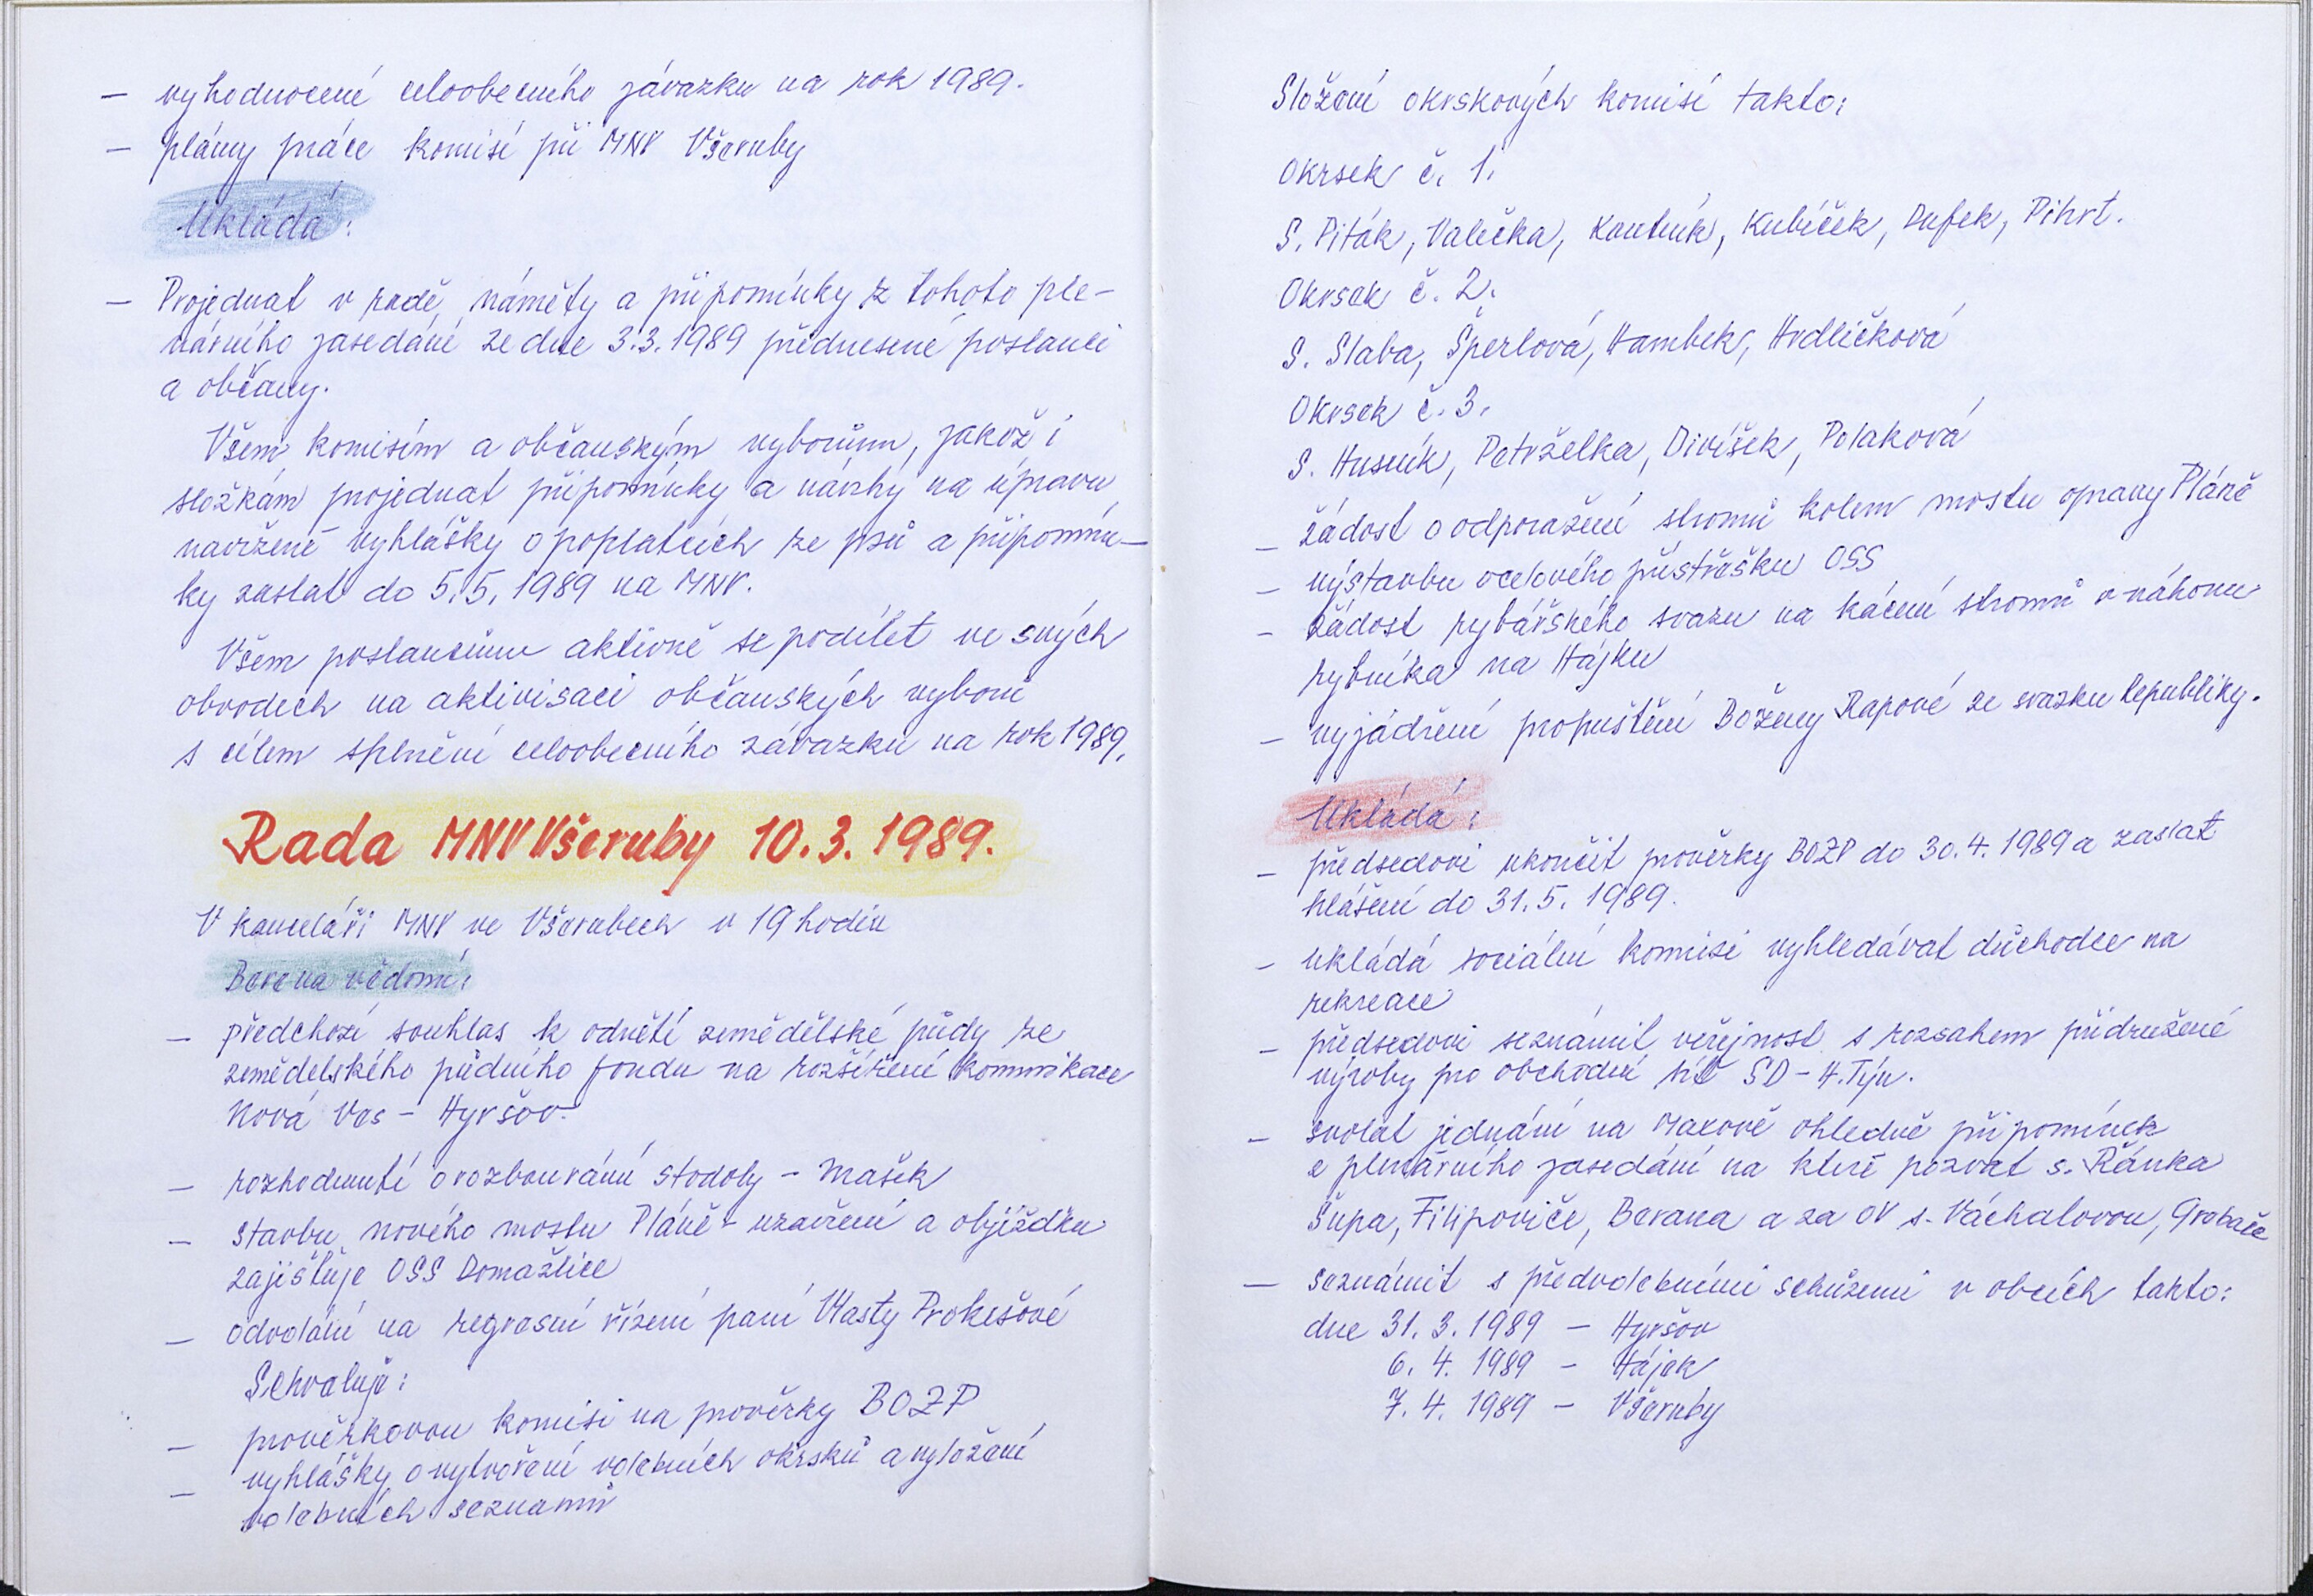 – vyhodnocení celoobecního závazku na rok 1989.
– plány práce komisí při MNV Všeruby
Ukládá:
– Projednat v radě, náměty a připomínky z tohoto ple-
nárního zasedání ze dne 3.3.1989 přednesené poslanci
a občany.
Všem komisím a občanským výborům, jakož i
složkám projednat připomínky a návrhy na úpravu
navržené vyhlášky o poplatcích ze psů a připomín-
ky zaslat do 5.5.1989 na MNV.
Všem poslancům aktivně se podílet ve svých
obvodech na aktivisaci občanských výborů
s cílem splnění celoobecního závazku na rok 1989.
Rada MNV Všeruby 10.3.1989.
V kanceláři MNV ve Všerubech v 19 hodin
Bere na vědomí:
– předchozí souhlas k odnětí zemědělské půdy ze
zemědelského půdního fondu na rozšíření komunikace
Nová Ves – Hyršov.
– rozhodnutí o rozbourání stodoly – Mašek
– stavbu nového mostu Pláně – uzavření a objížďku
zajišťuje OSS Domažlice
– odvolání na regresní řízení paní Vlasty Prokešové
Schvaluje:
– prověrkovou komisi na prověrky BOZP
– vyhlášky o vytvoření volebních okrsků a vyložení
volebních seznamů
Složení okrskových komisí takto:
Okrsek č. 1.
S. Piták, Valečka, Koutník, Kubíček, Dufek, Pihrt.
Okrsek č. 2.
S. Slaba, Šperlová, Hambek, Hrdličková
Okrsek č. 3.
S. Husník, Petrželka, Divíšek, Polaková
– žádost o odporažení stromů kolem mostu opravy Pláně
– výstavbu ocelového přístřešku OSS
– žádost rybářského svazu na kácení stromů v náhonu
rybníka na Hájku
– vyjádření propuštění Boženy Rapové ze svazku Republiky.
Ukládá:
– předsedovi ukončit prověrky BOZP do 30.4.1989 a zaslat
hlášení do 31.5.1989.
– ukládá sociální komisi vyhledávat důchodce na
rekreace
– předsedovi seznámit veřejnost s rozsahem přidružené
výroby pro obchodní síť SD – H.Týn.
– svolat jednání na Maxově ohledně připomínek
z plenárního zasedání na které pozvat s. Ránka
Šupa, Filipoviče, Berana a za OV s. Váchalovou, Grobače
– seznámit s předvolebními schůzemi v obcích takto:
dne 31. 3. 1989 – Hyršov
6. 4. 1989 – Hájek
7. 4. 1989 – Všeruby